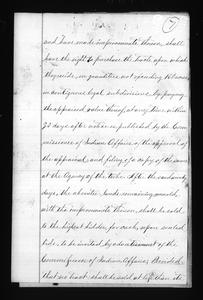 7
and have made improvements thereon, shall
have the right to purchase the lands upon which
they reside, in quantities not exceeding 160 acres
in contiguous legal subdivisions by paying
the appraised value thereof, at any time within
30 days after notice is published by the Com
missioner of Indian Affairs of the approval of
the appraisal and filing of a copy of the same
at the Agency of the tribe. After the said ninety
days, the aforesaid lands remaining unsold,
with the improvements thereon, shall be sold
to the highest bidder for cash, upon sealed
bids, to be invited by advertisement of the
Commissioner of Indian Affairs, Provided
that no tract shall be sold at less than its